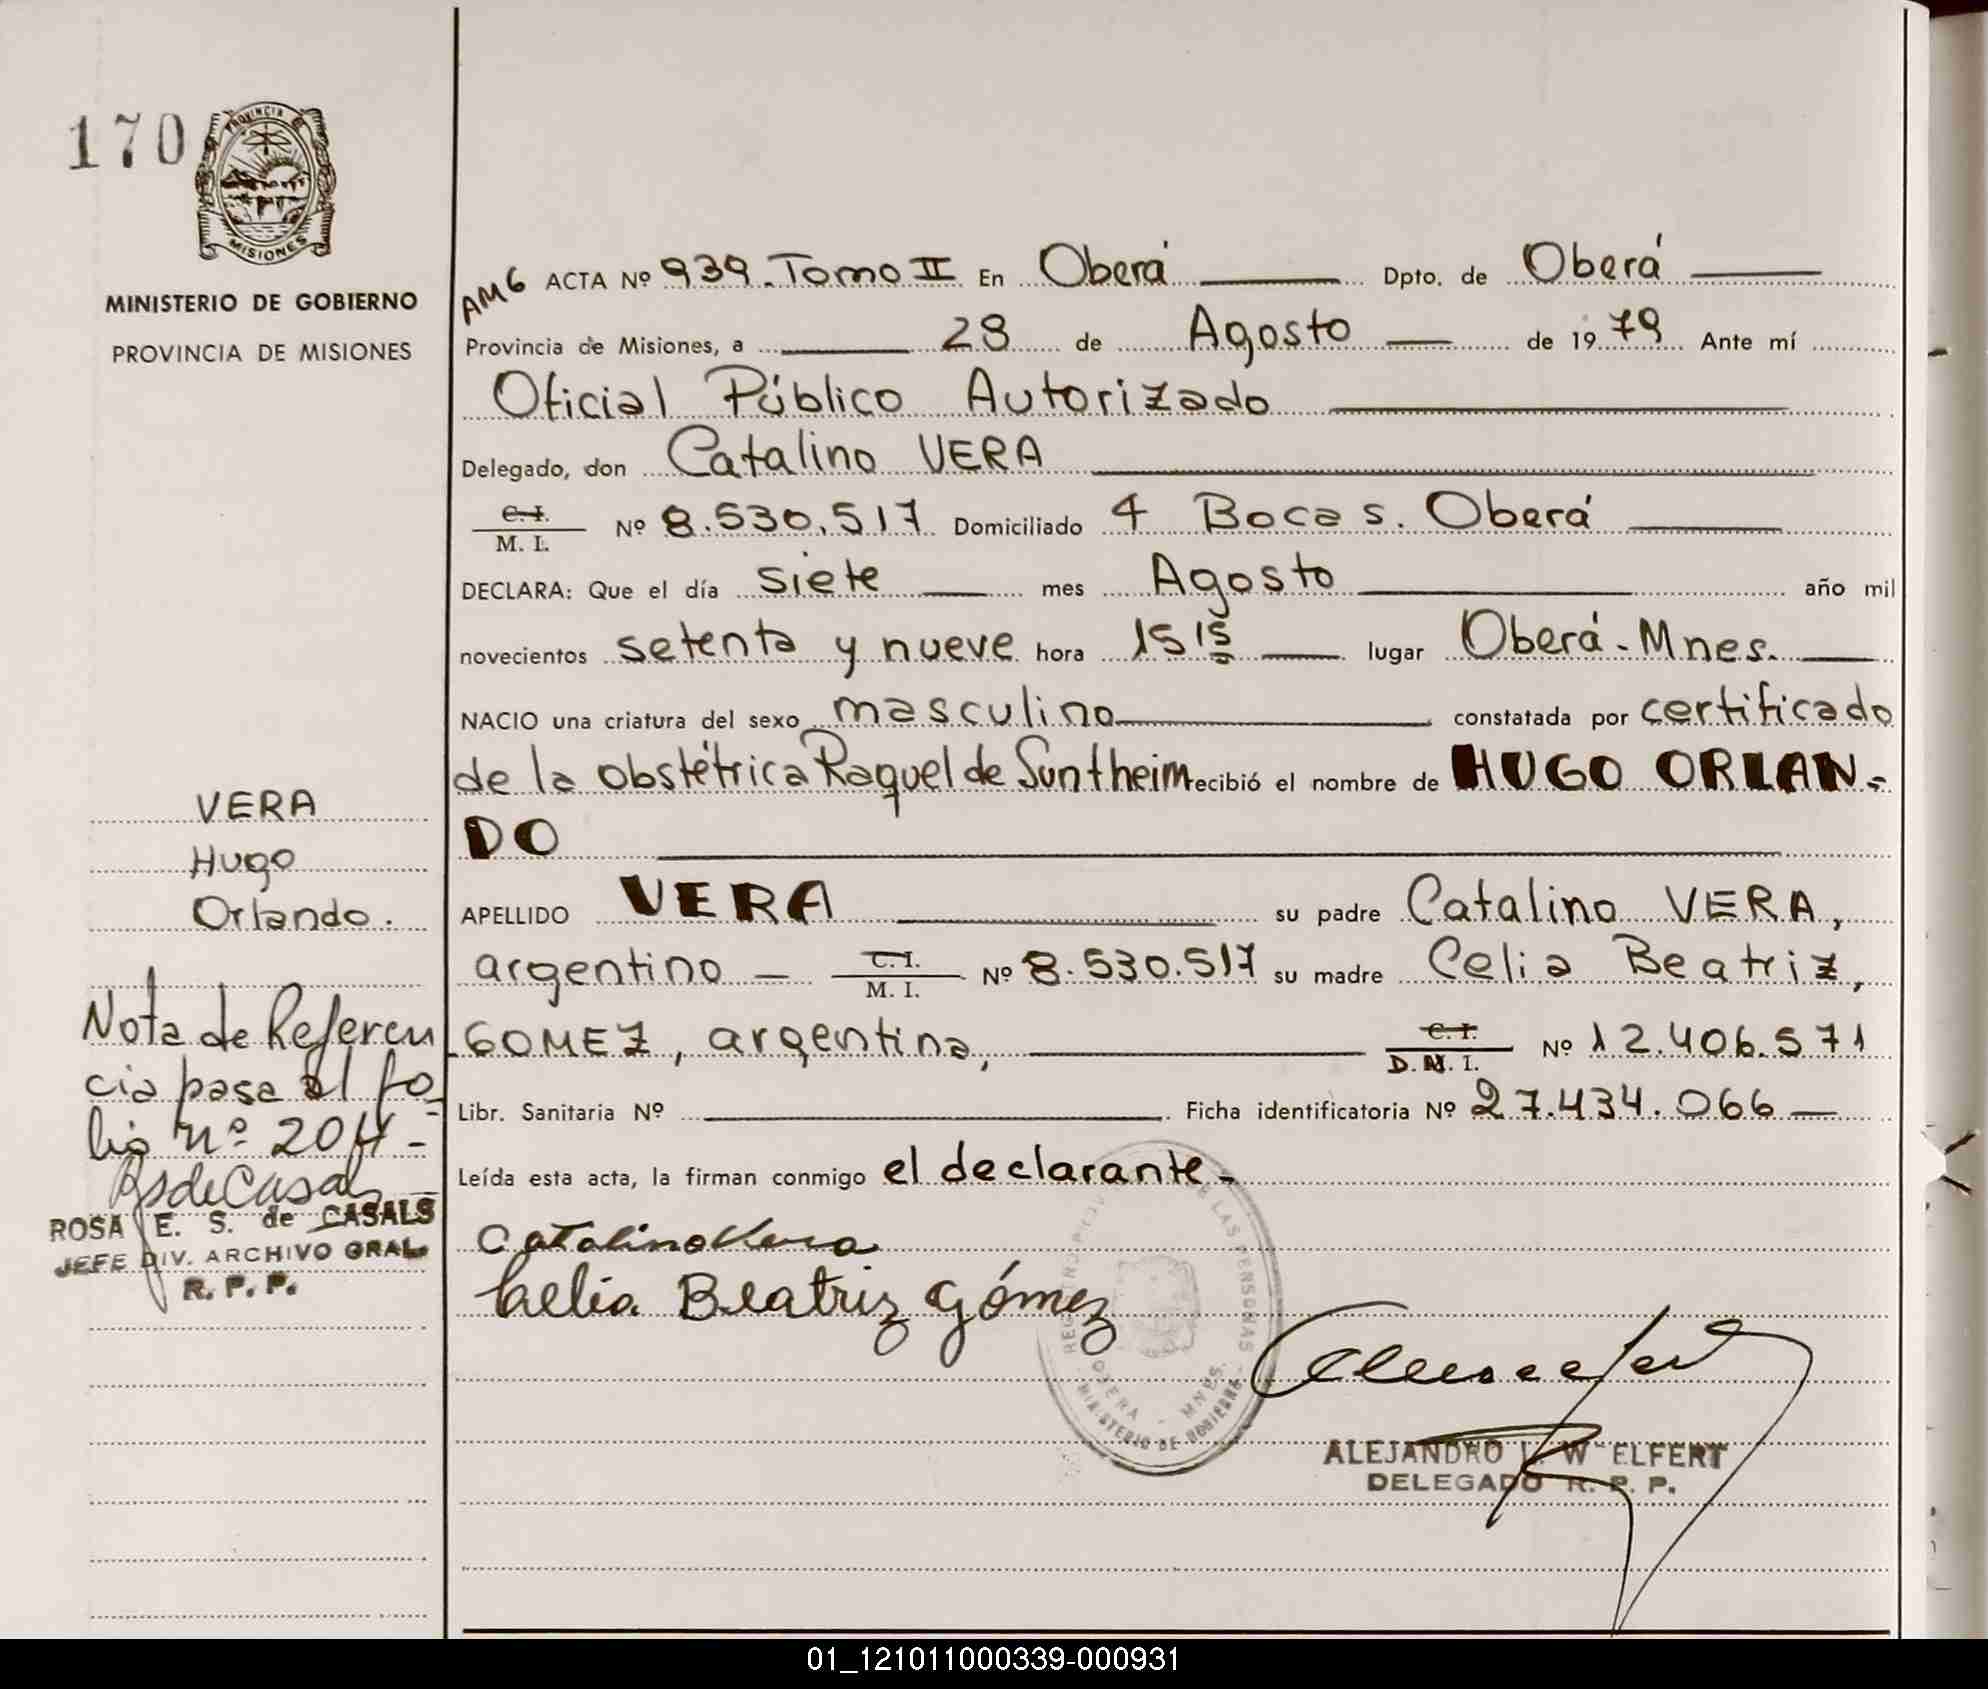 170
PROVINCIA DE
MISIONES
MINISTERIO DE GOBIERNO
PROVINCIA DE MISIONES
AM6 ACTA Nº 939. Tomo II En Oberá Dpto. de Oberá
Provincia de Misiones, a 28 de Agosto de 1979 Ante mí
Oficial Público Autorizado
Delegado, don Catalino VERA
C. I.
M. I. Nº 8.530.517 Domiciliado 4 Bocas. Oberá
DECLARA: Que el día siete mes Agosto año mil
novecientos setenta y nueve hora 15 15 lugar Oberá - Mnes.
NACIO una criatura del sexo masculino constatada por certificado
de la obstétrica Raquel de Suntheim recibió el nombre de HUGO ORLAN-
DO
APELLIDO VERA su padre Catalino VERA,
argentino C. I.
M. I. Nº 8.530.517 su madre Celia Beatriz,
GOMEZ, argentina, C. I.
D. N. I. Nº 12.406.571
Libr. Sanitaria Nº Ficha identificatoria Nº 27.434.066
Leída esta acta, la firman conmigo el declarante.
Catalino Vera
Celia Beatriz Gómez
REGISTRO PROV DE LAS PERSONAS
OBERA - MNES.
MINISTERIO DE GOBIERNO
ALEJANDRO W ELFERT
DELEGADO R. P. P.
VERA
Hugo
Orlando.
Nota de Referen
cia pasa al fo-
lio nº 204 -
RSdeCasals
ROSA E. S. de CASALS
JEFE DIV. ARCHIVO GRAL.
R. P. P.
01_121011000339-000931